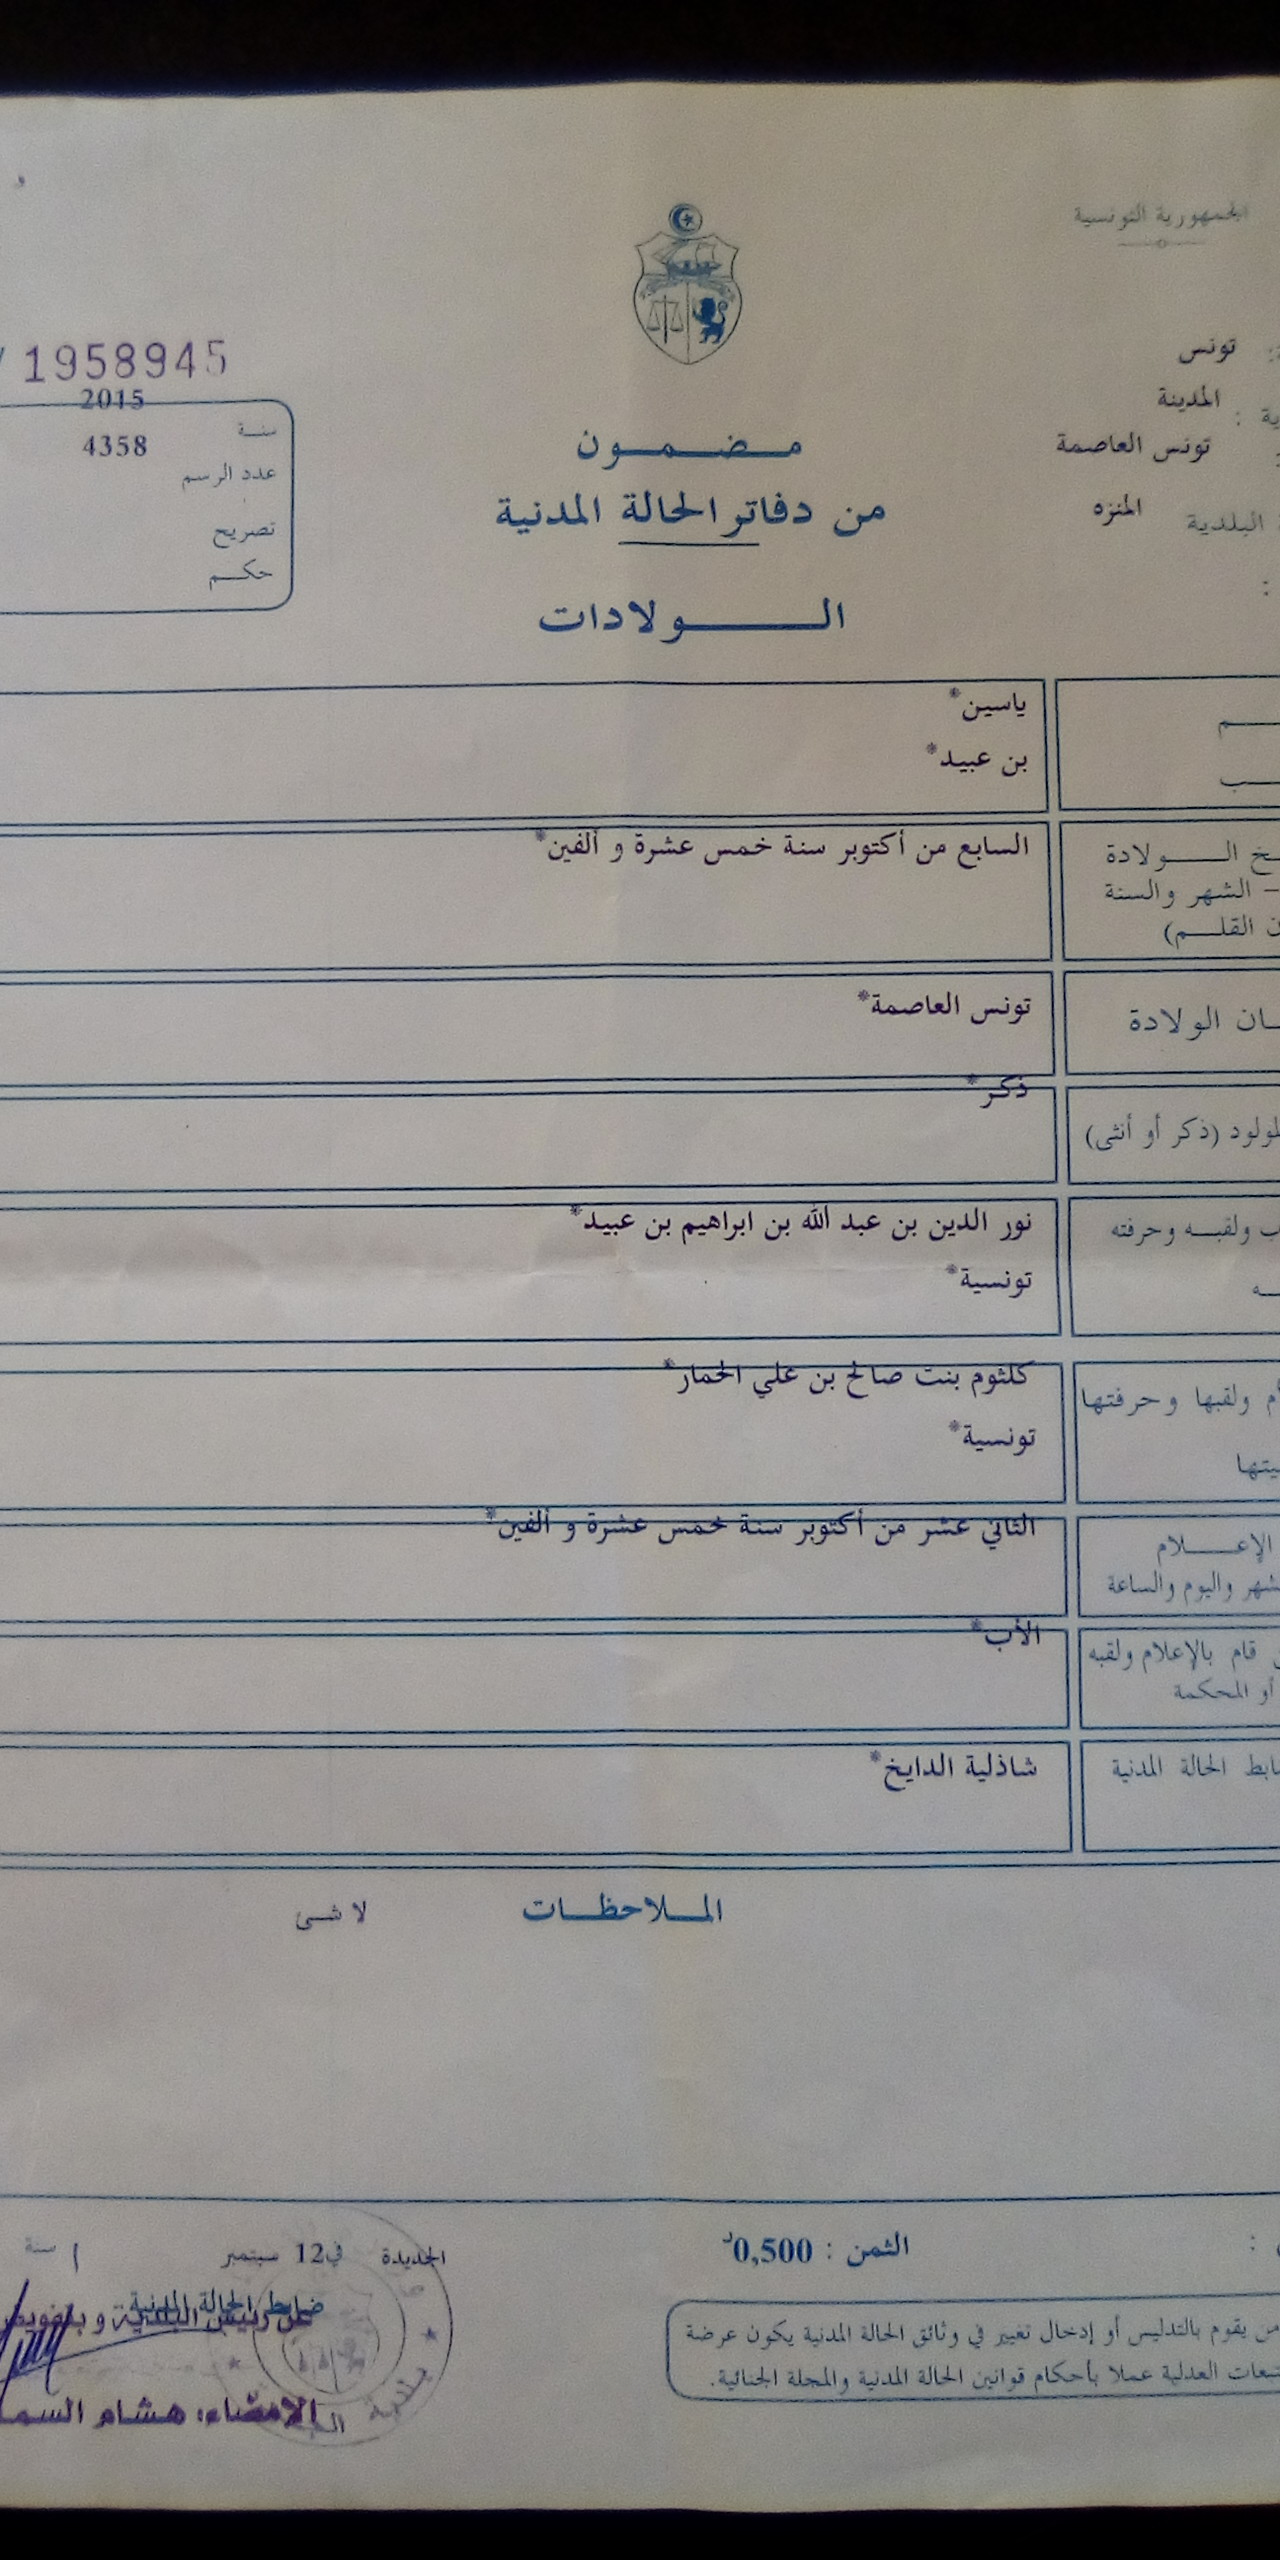 الجمهورية التونسية
تونس
المدينة
تونس العاصمة
البلدية المنزه
1958945
2015
سنة
4358
عدد الرسم
تصريح
حكم
مضمون
من دفاتر الحالة المدنية
الولادات
ياسين*
بن عبيد*
الولادة السابع من أكتوبر سنة خمس عشرة و ألفين*
– الشهر والسنة
القلم)
الولادة تونس العاصمة*
ذكر*
(ذكر أو أنثى)
ولقبه وحرفته نور الدين بن عبد الله بن ابراهيم بن عبيد*
تونسية*
ولقبها وحرفتها كلثوم بنت صالح بن علي الخمار*
تونسية*
الإعلام الثاني عشر من أكتوبر سنة خمس عشرة و ألفين*
واليوم والساعة
الأب*
قام بالإعلام ولقبه
أو المحكمة
الحالة المدنية شاذلية الدايخ*
الملاحظات لا شئ
الثمن : 0,500د
الجديدة في 12 سبتمبر سنة
ضابط الحالة المدنية
عن رئيس البلدية و
الامضاء: هشام
من يقوم بالتدليس أو إدخال تغيير في وثائق الحالة المدنية يكون عرضة
العدلية عملا بأحكام قوانين الحالة المدنية والمجلة الجنائية.